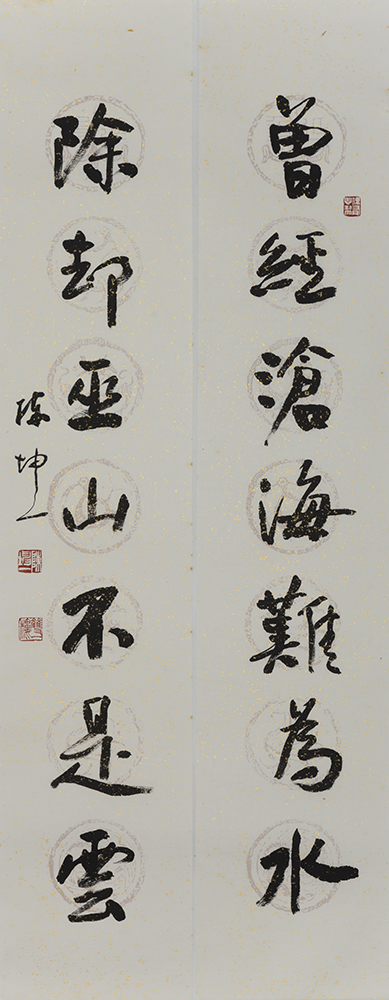 曾經滄海難為水
除却巫山不是雲
陳坤一